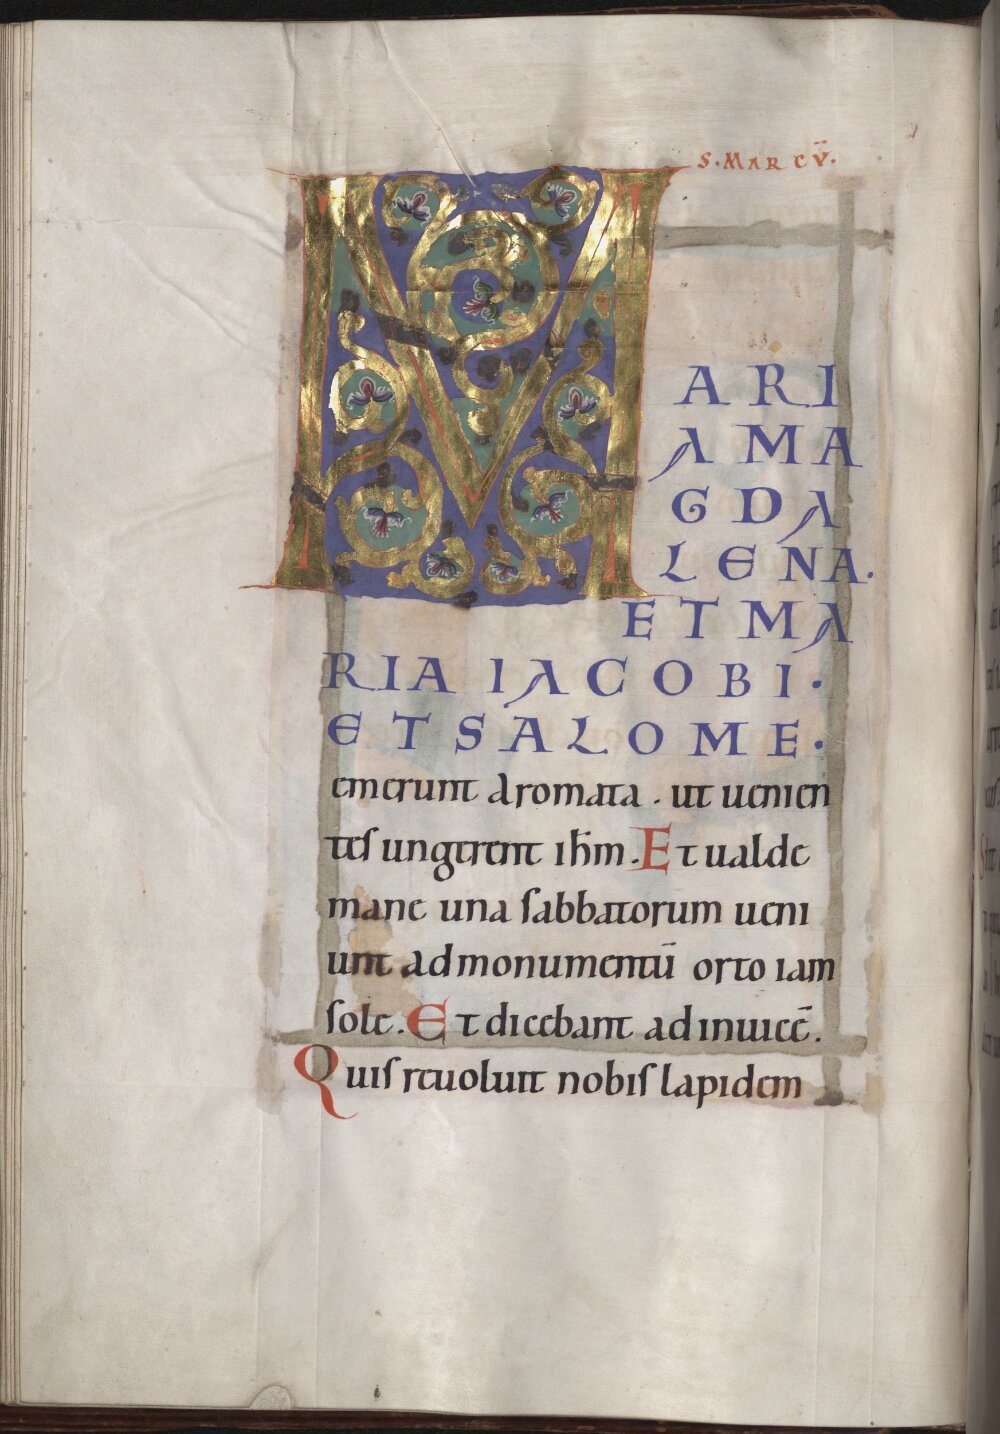 S. MARCŪ.
M ARI
AMA
GDA
LENA.
ETMA
RIA IACOBI.
ETSALOME.
emerunt aromata . ut uenien
tes ungerent ihm̄. Et ualde
mane una sabbatorum ueni
unt ad monumentū orto iam
sole. Et dicebant ad inuicē.
Quis reuoluit nobis lapidem